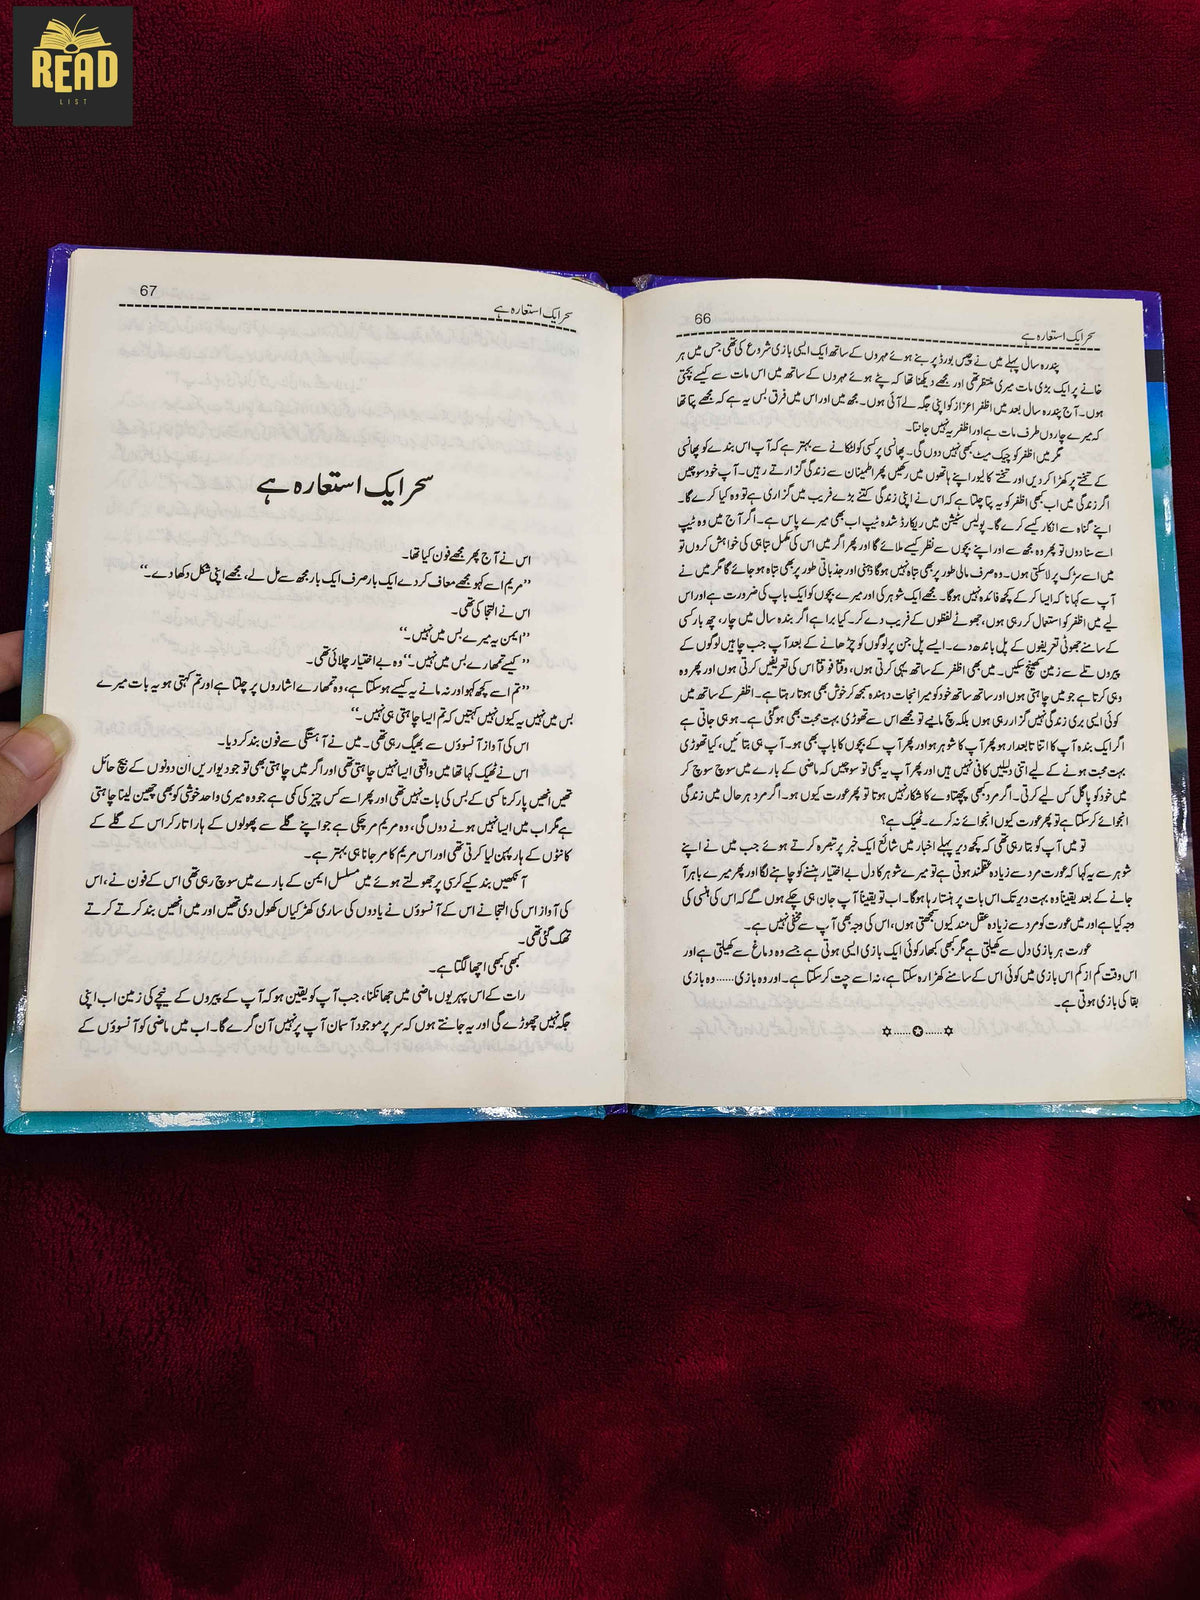 READ
LIST
66
سحر ایک استعارہ ہے
پندرہ سال پہلے میں نے چیس بورڈ پر بنے ہوئے مہروں کے ساتھ ایک ایسی بازی شروع کی تھی جس میں ہر
خانے پر ایک بڑی مات میری منتظر تھی اور مجھے دیکھنا تھا کہ پٹے ہوئے مہروں کے ساتھ میں اس مات سے کیسے بچتی
ہوں۔ آج پندرہ سال بعد میں اظفر اعزاز کو اپنی جگہ لے آئی ہوں۔ مجھ میں اور اس میں فرق بس یہ ہے کہ مجھے پتا تھا
کہ میرے چاروں طرف مات ہے اور اظفر یہ نہیں جانتا۔
مگر میں اظفر کو چیک میٹ کبھی نہیں دوں گی۔ پھانسی پر کسی کو لٹکانے سے بہتر ہے کہ آپ اس بندے کو پھانسی
کے تختے پر کھڑا کر دیں اور تختے کا لیور اپنے ہاتھوں میں رکھیں پھر اطمینان سے زندگی گزارتے رہیں۔ آپ خود سوچیں
اگر زندگی میں اب کبھی اظفر کو یہ پتا چلتا ہے کہ اس نے اپنی زندگی کتنے بڑے فریب میں گزاری ہے تو وہ کیا کرے گا۔
اپنے گناہ سے انکار کیسے کرے گا۔ پولیس سٹیشن میں ریکارڈ شدہ ٹیپ اب بھی میرے پاس ہے۔ اگر آج میں وہ ٹیپ
اسے سنا دوں تو پھر وہ مجھ سے اور اپنے بچوں سے نظر کیسے ملائے گا اور پھر اگر میں اس کی مکمل تباہی کی خواہش کروں تو
میں اسے سڑک پر لا سکتی ہوں۔ وہ صرف مالی طور پر بھی تباہ نہیں ہوگا ذہنی اور جذباتی طور پر بھی تباہ ہو جائے گا مگر میں نے
آپ سے کہا نا کہ ایسا کر کے کچھ فائدہ نہیں ہوگا۔ مجھے ایک شوہر کی اور میرے بچوں کو ایک باپ کی ضرورت ہے اور اس
لیے میں اظفر کو استعمال کر رہی ہوں، جھوٹے لفظوں کے فریب دے کر۔ کیا برا ہے اگر بندہ سال میں چار، چھ بار کسی
کے سامنے جھوٹی تعریفوں کے پل باندھ دے۔ ایسے پل جن پر لوگوں کو چڑھانے کے بعد آپ جب چاہیں لوگوں کے
پیروں تلے سے زمین کھینچ سکیں۔ میں بھی اظفر کے ساتھ یہی کرتی ہوں، وقتاً فوقتاً اس کی تعریفیں کرتی ہوں اور پھر وہ
وہی کرتا ہے جو میں چاہتی ہوں اور ساتھ ساتھ خود کو میرا نجات دہندہ سمجھ کر خوش بھی ہوتا رہتا ہے۔ اظفر کے ساتھ میں
کوئی ایسی بری زندگی نہیں گزار رہی ہوں بلکہ سچ مانیے تو مجھے اس سے تھوڑی بہت محبت بھی ہو گئی ہے۔ ہو ہی جاتی ہے
اگر ایک بندہ آپ کا اتنا تابعدار ہو پھر آپ کا شوہر ہو اور پھر آپ کے بچوں کا باپ بھی ہو۔ آپ ہی بتائیں، کیا تھوڑی
بہت محبت ہونے کے لیے اتنی دلیلیں کافی نہیں ہیں اور پھر آپ یہ بھی تو سوچیں کہ ماضی کے بارے میں سوچ سوچ کر
میں خود کو پاگل کس لیے کرتی۔ اگر مرد بھی پچھتاوے کا شکار نہیں ہوتا تو پھر عورت کیوں ہو۔ اگر مرد ہر حال میں زندگی
انجوائے کر سکتا ہے تو پھر عورت کیوں انجوائے نہ کرے۔ ٹھیک ہے؟
تو میں آپ کو بتا رہی تھی کہ کچھ دیر پہلے اخبار میں شائع ایک خبر پر تبصرہ کرتے ہوئے جب میں نے اپنے
شوہر سے یہ کہا کہ عورت مرد سے زیادہ عقلمند ہوتی ہے تو میرے شوہر کا دل بے اختیار ہنسنے کو چاہنے لگا اور پھر میرے باہر آ
جانے کے بعد یقیناً وہ بہت دیر تک اس بات پر ہنستا رہا ہوگا۔ اب تو یقیناً آپ جان ہی چکے ہوں گے کہ اس کی ہنسی کی
وجہ کیا ہے اور میں عورت کو مرد سے زیادہ عقل مند کیوں سمجھتی ہوں، اس کی وجہ بھی آپ سے مخفی نہیں ہے۔
عورت ہر بازی دل سے کھیلتی ہے مگر کبھی کبھار کوئی ایک بازی ایسی ہوتی ہے جسے وہ دماغ سے کھیلتی ہے اور
اس وقت کم از کم اس بازی میں کوئی اس کے سامنے کھڑا رہ سکتا ہے، نہ اسے چت کر سکتا ہے۔ اور وہ بازی...... وہ بازی
بقا کی بازی ہوتی ہے۔
✡......✪......✡
67
سحر ایک استعارہ ہے
سحر ایک استعارہ ہے
اس نے آج پھر مجھے فون کیا تھا۔
”مریم اسے کہو مجھے معاف کر دے ایک بار صرف ایک بار مجھ سے مل لے، مجھے اپنی شکل دکھا دے۔“
اس نے التجا کی تھی۔
”ایمن یہ میرے بس میں نہیں۔“
”کیسے تمہارے بس میں نہیں۔“ وہ بے اختیار چلائی تھی۔
”تم اسے کچھ کہو اور نہ مانے یہ کیسے ہو سکتا ہے، وہ تمہارے اشاروں پر چلتا ہے اور تم کہتی ہو یہ بات میرے
بس میں نہیں یہ کیوں نہیں کہتیں کہ تم ایسا چاہتی ہی نہیں۔“
اس کی آواز آنسوؤں سے بھیگ رہی تھی۔ میں نے آہستگی سے فون بند کر دیا۔
اس نے ٹھیک کہا تھا میں واقعی ایسا نہیں چاہتی تھی اور اگر میں چاہتی بھی تو جو دیواریں ان دونوں کے بیچ حائل
تھیں انھیں پار کرنا کسی کے بس کی بات نہیں تھی اور پھر اسے کس چیز کی کمی ہے جو وہ میری واحد خوشی کو بھی چھین لینا چاہتی
ہے مگر اب میں ایسا نہیں ہونے دوں گی، وہ مریم مر چکی ہے جو اپنے گلے سے پھولوں کے ہار اتار کر اس کے گلے کے
کانٹوں کے ہار پہن لیا کرتی تھی اور اس مریم کا مر جانا ہی بہتر ہے۔
آنکھیں بند کیے کرسی پر جھولتے ہوئے میں مسلسل ایمن کے بارے میں سوچ رہی تھی اس کے فون نے، اس
کی آواز اس کی التجا نے اس کے آنسوؤں نے یادوں کی ساری کھڑکیاں کھول دی تھیں اور میں انھیں بند کرتے کرتے
تھک گئی تھی۔
کبھی کبھی اچھا لگتا ہے۔
رات کے اس پہر یوں ماضی میں جھانکنا، جب آپ کو یقین ہو کہ آپ کے پیروں کے نیچے کی زمین اب اپنی
جگہ نہیں چھوڑے گی اور یہ جانتے ہوں کہ سر پر موجود آسمان آپ پر نہیں آن گرے گا۔ اب میں ماضی کو آنسوؤں کے